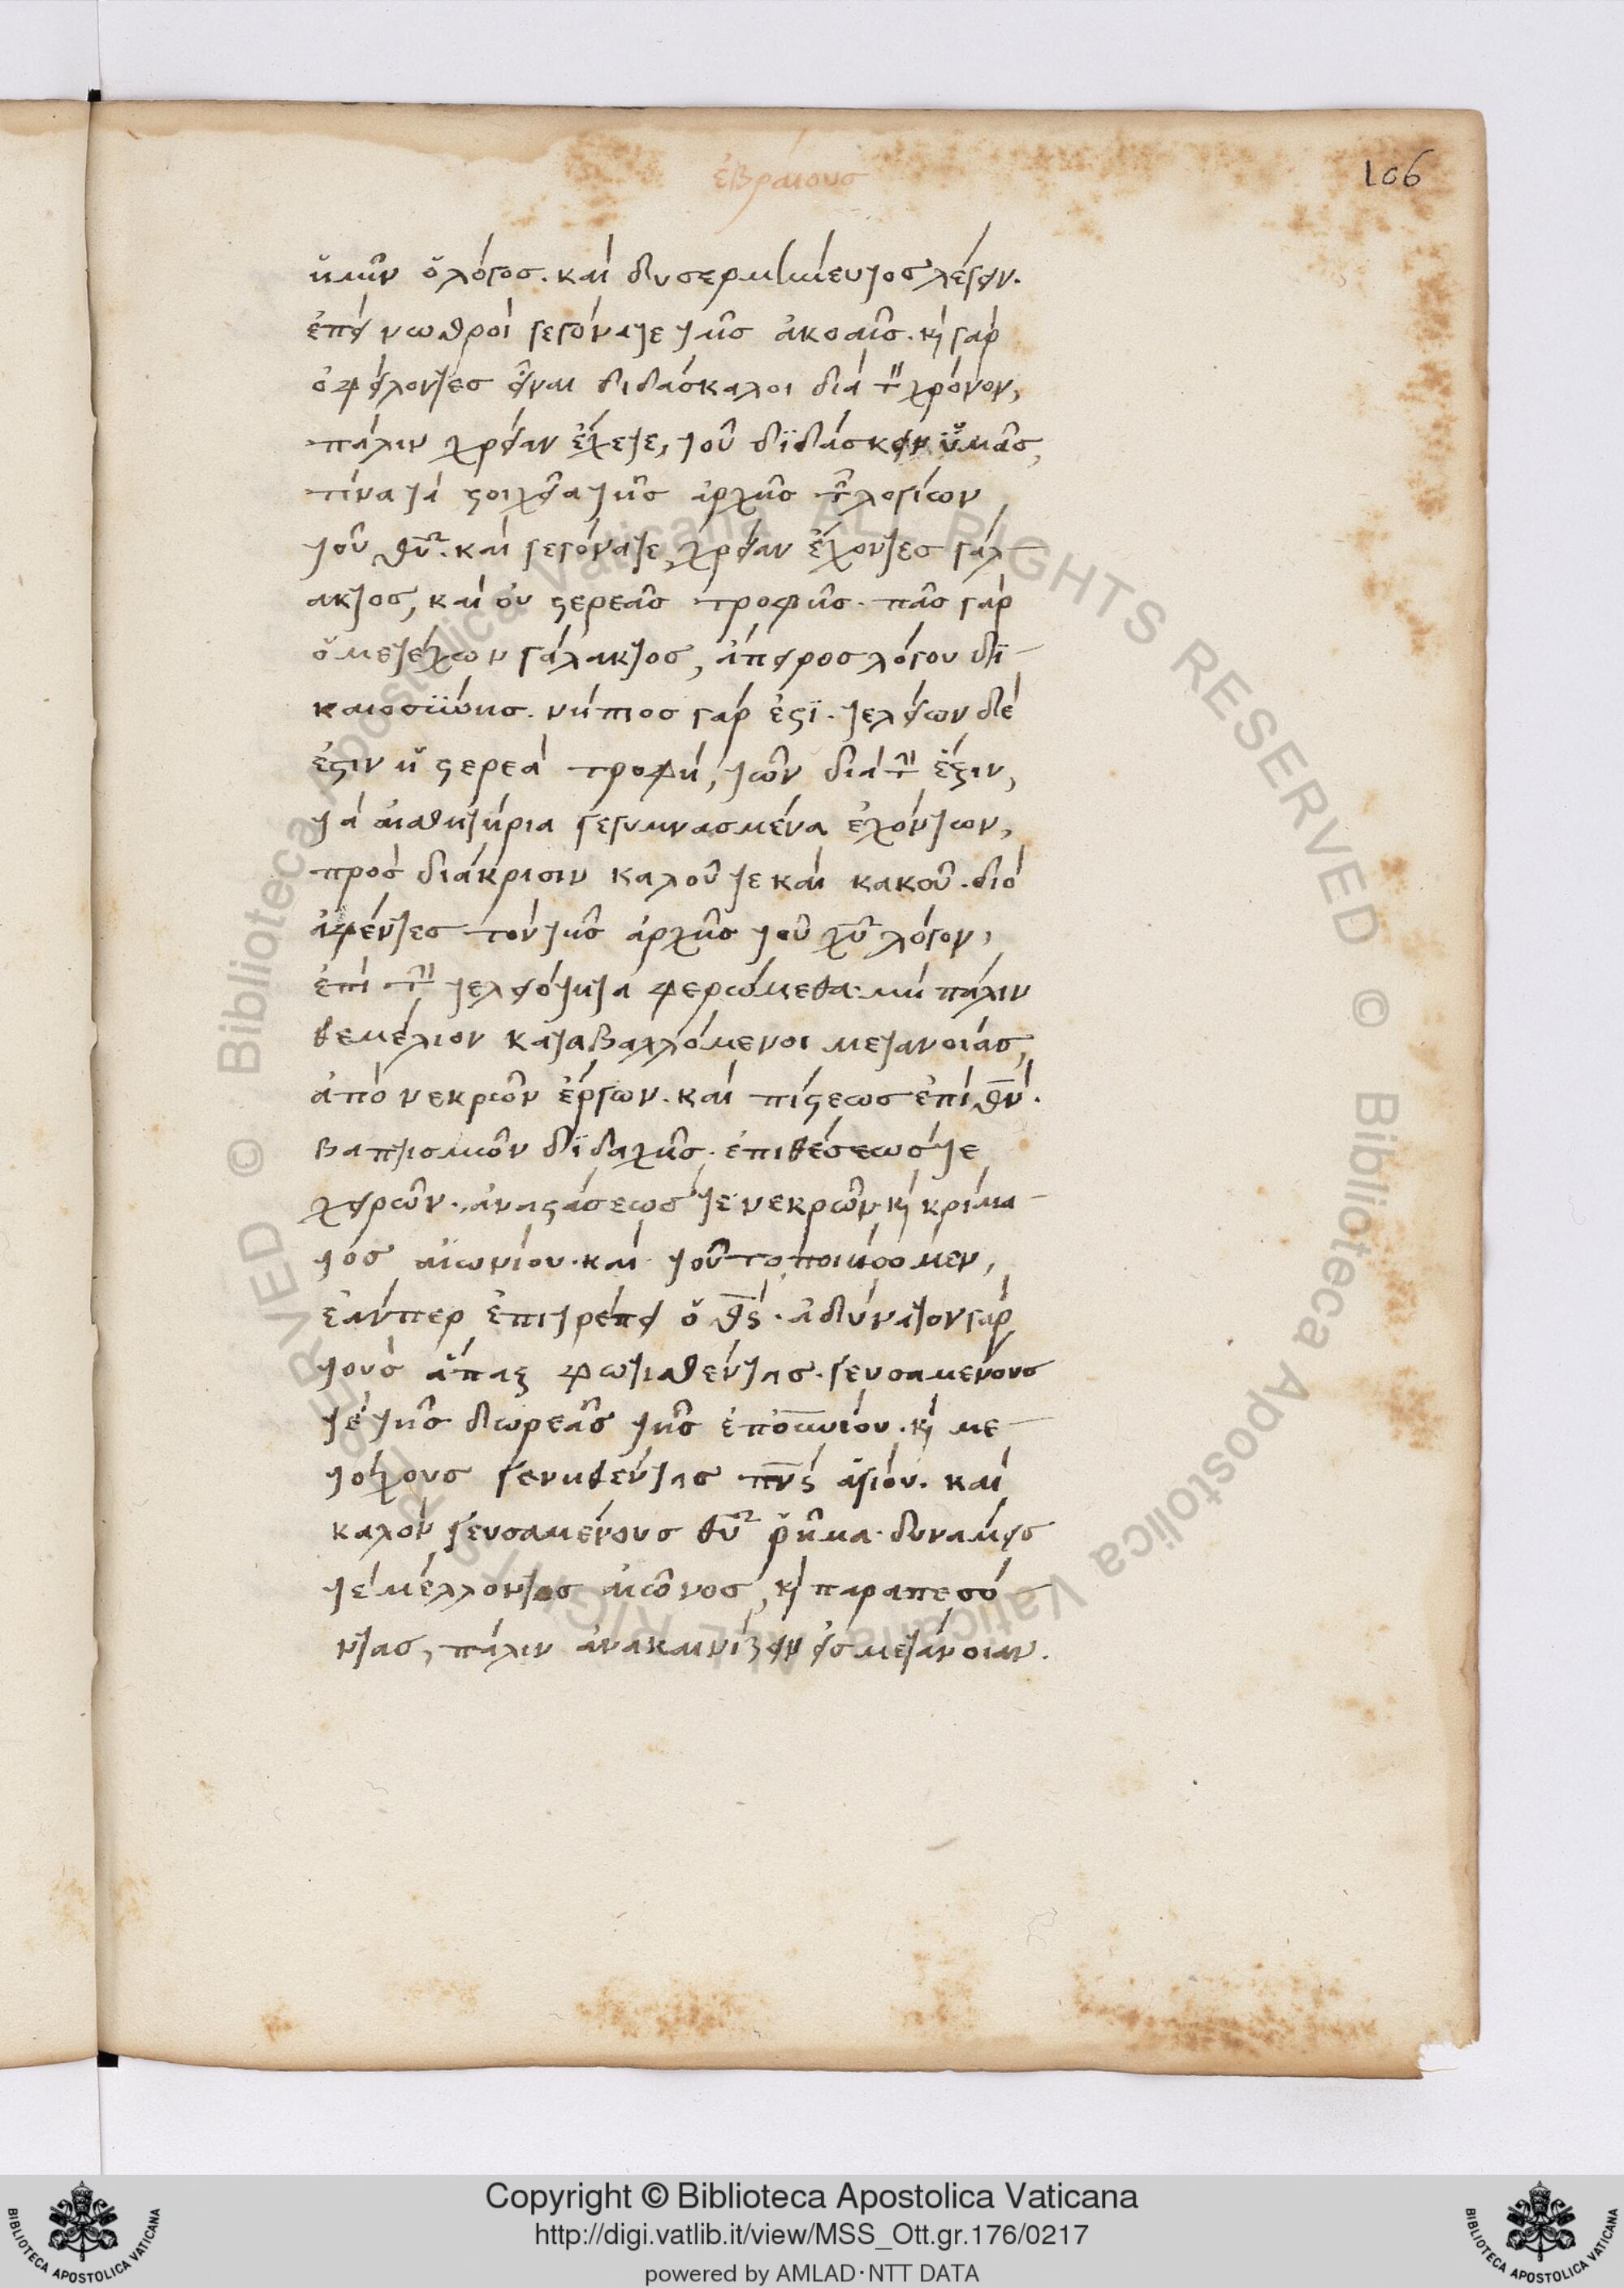 ἑβραίους
106
ἡμῖν ὁ λόγος. καὶ δυσερμήνευτος λέγειν.
ἐπεὶ νωθροὶ γεγόνατε ταῖς ἀκοαῖς. κὶ γὰρ
ὀφείλοντες εἶναι διδάσκαλοι διὰ τὸν χρόνον,
πάλιν χρείαν ἔχετε, τοῦ διδάσκειν ὑμᾶς,
τίνα τὰ στοιχεῖα τῆς ἀρχῆς τῶν λογίων
τοῦ θυ. καὶ γεγόνατε, χρείαν ἔχοντες γάλ-
ακτος, καὶ οὐ στερεᾶς τροφῆς. πᾶς γὰρ
ὁ μετέχων γάλακτος, ἄπειρος λόγου δι-
καιοσύνης. νήπιος γάρ ἐστι. τελείων δέ
ἐστιν ἡ στερεὰ τροφή, τῶν διὰ τὴν ἕξιν,
τὰ αἰσθητήρια γεγυμνασμένα ἐχόντων,
πρὸς διάκρισιν καλοῦ τε καὶ κακοῦ. διὸ
ἀφέντες τὸν τῆς ἀρχῆς τοῦ χυ λόγον,
ἐπὶ τὴν τελειότητα φερώμεθα. μὴ πάλιν
θεμέλιον καταβαλλόμενοι μετανοίας,
ἀπὸ νεκρῶν ἔργων. καὶ πίστεως ἐπὶ θν.
βαπτισμῶν διδαχῆς. ἐπιθέσεώς τε
χειρῶν. ἀναστάσεώς τε νεκρῶν. κὶ κρίμα-
τος αἰωνίου. καὶ τοῦτο ποιήσομεν,
ἐάνπερ ἐπιτρέπει ὁ θς. ἀδύνατον γὰρ
τοὺς ἅπαξ φωτισθέντας. γευσαμένους
τὲ τῆς δωρεᾶς τῆς ἐπουνίου. κὶ με-
τόχους γενηθέντας πνς ἁγίου. καὶ
καλὸν γευσαμένους θυ ῥῆμα. δυνάμεις
τὲ μέλλοντος αἰῶνος, κὶ παραπεσό-
ντας, πάλιν ἀνακαινίζειν εἰς μετάνοιαν.
Copyright © Biblioteca Apostolica Vaticana
http://digi.vatlib.it/view/MSS_Ott.gr.176/0217
powered by AMLAD·NTT DATA